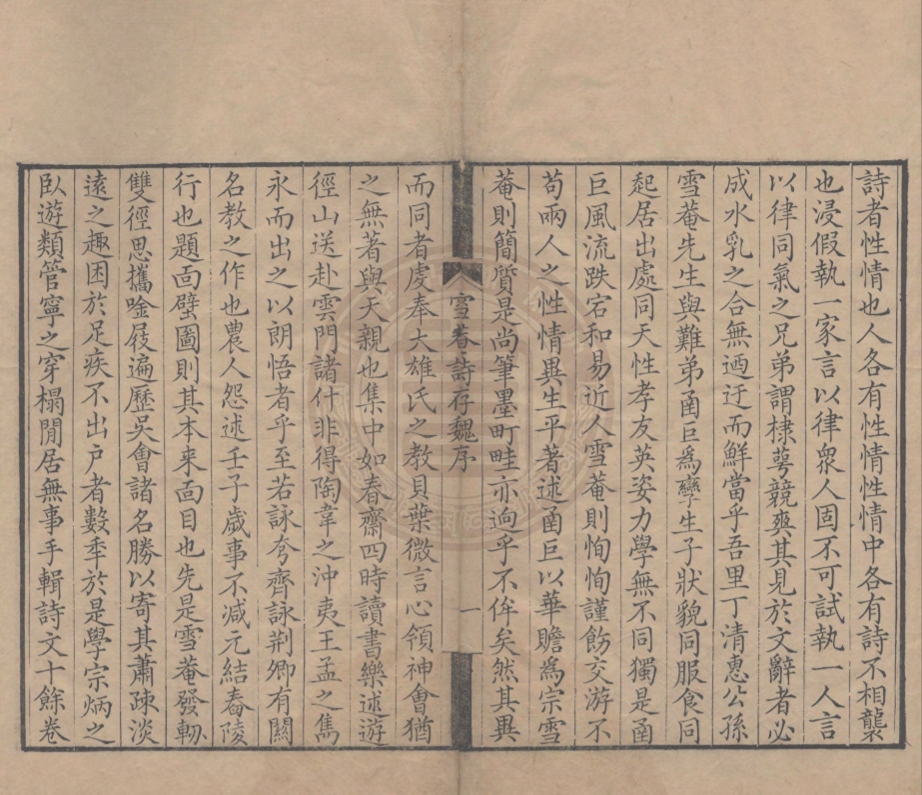 詩者性情也人各有性情性情中各有詩不相襲
也浸假執一家言以律衆人固不可試執一人言
以律同氣之兄弟謂棣萼競爽其見於文辭者必
成水乳之合無迺迂而鮮當乎吾里丁清惠公孫
雪菴先生與難弟凾巨為孿生子狀貌同服食同
起居出處同天性孝友英姿力學無不同獨是凾
巨風流跌宕和易近人雪菴則恂恂謹飭交游不
苟兩人之性情異生平著述凾巨以華贍為宗雪
菴則簡質是尚筆墨町畦亦迥乎不侔矣然其異
雪菴詩存魏序
一
而同者虔奉大雄氏之教貝葉微言心領神會猶
之無著與天親也集中如春齋四時讀書樂述遊
徑山送赴雲門諸什非得陶韋之沖夷王孟之雋
永而出之以朗悟者乎至若詠夸齊詠荆卿有關
名教之作也農人怨述壬子歲事不减元結舂陵
行也題面壁圖則其本来面目也先是雪菴發軔
雙徑思攜唫屐遍歷吳會諸名勝以寄其蕭疎淡
遠之趣困於足疾不出户者數秊於是學宗炳之
臥遊類管寧之穿榻閒居無事手輯詩文十餘卷